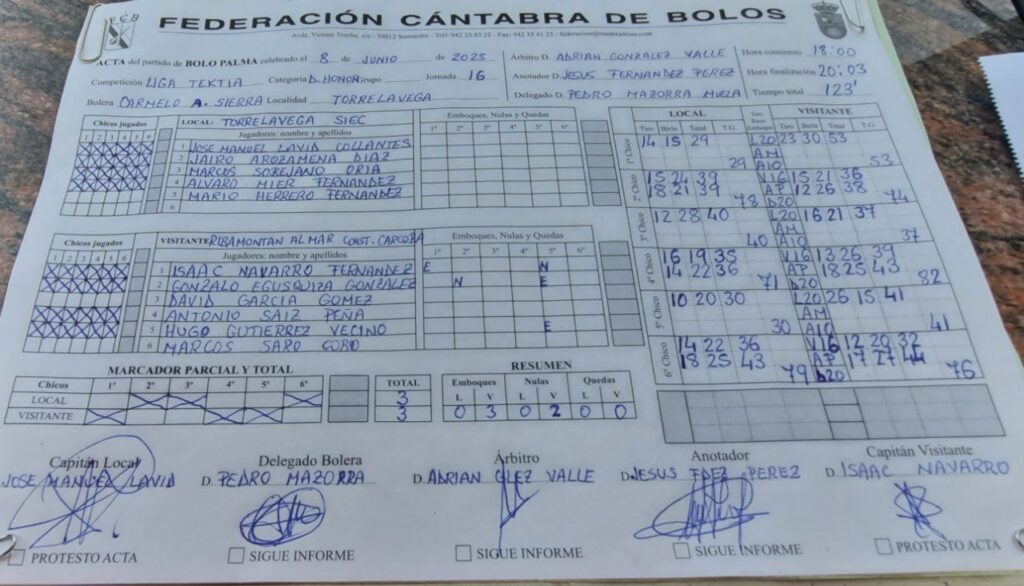 FEDERACIÓN CÁNTABRA DE BOLOS
Avda. Vicente Trueba, s/n - 39012 Santander - Telf: 942 33 83 22 - Fax: 942 35 41 23 - federacion@maderadeser.com
ACTA del partido de BOLO PALMA celebrado el 8 de JUNIO de 2025
Competición LIGA TEXTIA Categoría D. HONOR Grupo Jornada 16
Bolera CARMELO A. SIERRA Localidad TORRELAVEGA
Árbitro D. ADRIAN GONZALEZ VALLE
Anotador D. JESUS FERNANDEZ PEREZ
Delegado D. PEDRO MAZORRA MUELA
Hora comienzo 18:00
Hora finalización 20:03
Tiempo total 123'
Chicos jugados
1 2 3 4 5 6
LOCAL: TORRELAVEGA SIEC
Jugadores: nombre y apellidos
1 JOSE MANUEL LAVID COLLANTES
2 JAIRO AROZAMENA DIAZ
3 MARCOS SOBEJANO ORIA
4 ALVARO MIER FERNANDEZ
5 MARIO HERRERO FERNANDEZ
6
Emboques, Nulas y Quedas
1º 2º 3º 4º 5º 6º
Chicos jugados
1 2 3 4 5 6
VISITANTE: RIBAMONTAN AL MAR CONST. CARCOBA
Jugadores: nombre y apellidos
1 ISAAC NAVARRO FERNANDEZ E N
2 GONZALO EGUSQUIZA GONZALEZ N E
3 DAVID GARCIA GOMEZ
4 ANTONIO SAIZ PEÑA
5 HUGO GUTIERREZ VECINO E
6 MARCOS SARO COBO
Emboques, Nulas y Quedas
1º 2º 3º 4º 5º 6º
LOCAL VISITANTE
Tiro Birle Total T.G. Tiro Raya Emboque Tiro Birle Total T.G.
1º Chico 14 15 29 L20 23 30 53
AM
29 A10 53
2º Chico 15 24 39 V16 15 21 36
18 21 39 AP 12 26 38
78 D20 74
3º Chico 12 28 40 L20 16 21 37
AM
40 A10 37
4º Chico 16 19 35 V16 13 26 39
14 22 36 AP 18 25 43
71 D20 82
5º Chico 10 20 30 L20 26 15 41
AM
30 A10 41
6º Chico 14 22 36 V16 12 20 32
18 25 43 AP 17 27 44
79 D20 76
MARCADOR PARCIAL Y TOTAL
Chicos 1º 2º 3º 4º 5º 6º TOTAL
LOCAL 3
VISITANTE 3
RESUMEN
Emboques Nulas Quedas
L V L V L V
0 3 0 2 0 0
Capitán Local
JOSE MANUEL LAVID
PROTESTO ACTA
Delegado Bolera
D. PEDRO MAZORRA
SIGUE INFORME
Árbitro
D. ADRIAN GLEZ VALLE
SIGUE INFORME
Anotador
D. JESUS FDEZ PEREZ
SIGUE INFORME
Capitán Visitante
D. ISAAC NAVARRO
PROTESTO ACTA